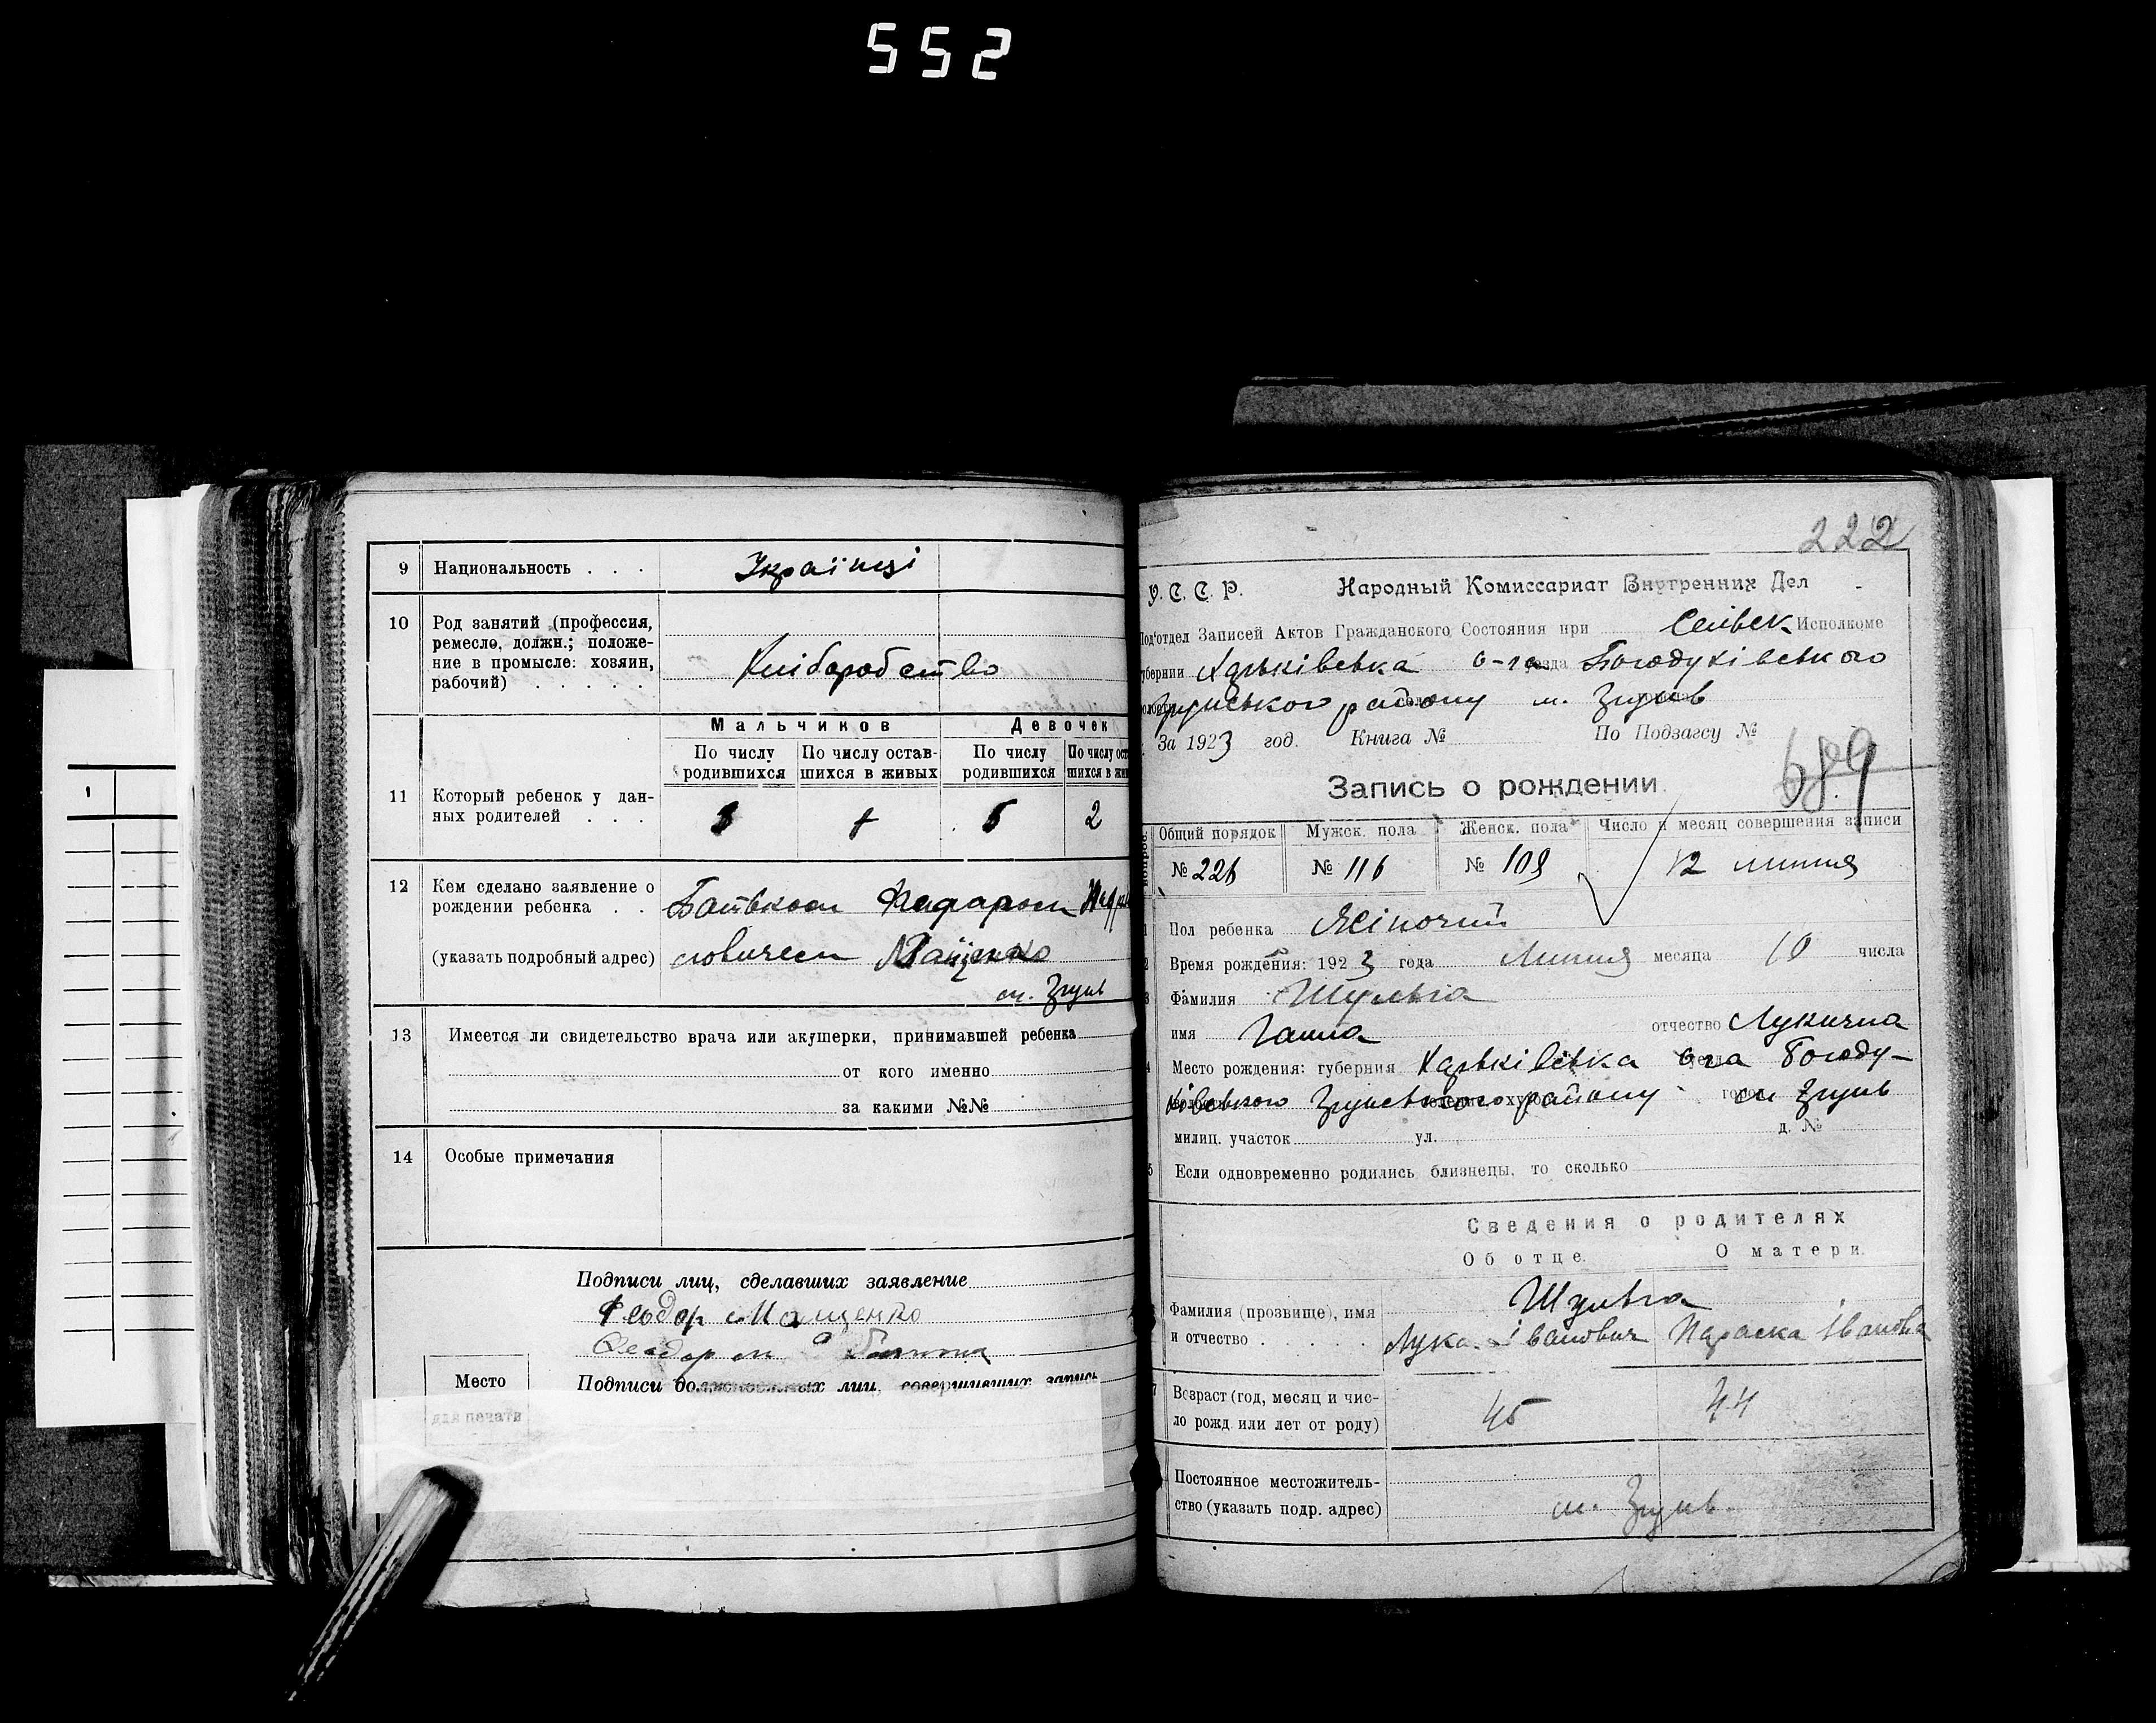 552
9 Национальность . . . Українці
10 Род занятий (профессия,
ремесло, должн.; положе-
ние в промысле: хозяин,
рабочий) . . . . .
Хліборобство
Мальчиков Девочек
По числу родившихся По числу остав-шихся в живых По числу родившихся По числу ост шихся в жи
11 Который ребенок у дан-
ных родителей . . .
2
12 Кем сделано заявление о
рождении ребенка . .
Батьком
(указать подробный адрес)
м. Зіньків
13 Имеется ли свидетельство врача или акушерки, принимавшей ребенка
от кого именно
за какими №№
14 Особые примечания
Подписи лиц, сделавших заявление
Феодор Мащенко
Место
для печати
Подписи должностных лиц, совершивших запись
1
222
У. С. С. Р. Народный Комиссариат Внутренних Дел
Под'отдел Записей Актов Гражданского Состояния при Исполкоме
губернии Харьківська Богодухівського
району м.
За 1923 год. Книга № По Подзагсу №
689
Запись о рождении
Общий порядок Мужск. пола Женск. пола Число и месяц совершения записи
№ 226 № 116 № 109 12 липня
Пол ребенка Жіночий
Время рождения: 1923 года Липня месяца 10 числа
Фамилия Шульга
имя Ганна отчество Лукична
Место рождения: губерния Харьківська Богоду-
району
милиц. участок ул. д. №
5 Если одновременно родились близнецы, то сколько
Сведения о родителях
Об отце. О матери.
Шульга
Фамилия (прозвище), имя
и отчество . . . . Лука Іванович Параска Іванова
Возраст (год, месяц и чис-
ло рожд. или лет от роду)
45 44
Постоянное местожитель-
ство (указать подр. адрес)